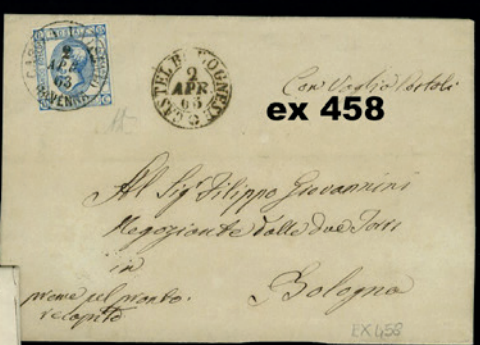 CASTEL BOLOGNESE
RAVENNA
2
APR
63
CASTEL BOLOGNESE
2
APR
63
Con Vaglia Postale
ex 458
Al Sigr Filippo Giovannini
Negoziante dalle due Torri
in
Bologna
preme pel pronto
recapito
EX 458